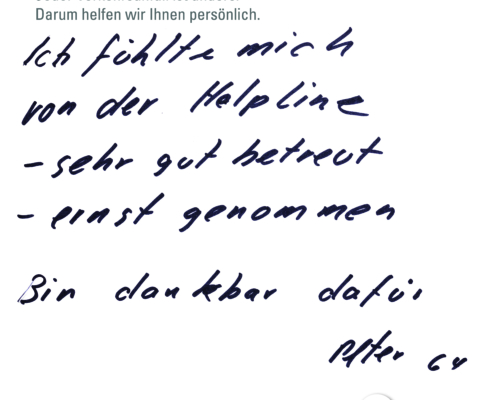 Darum helfen wir Ihnen persönlich.
Ich fühlte mich
von der Helpline
- sehr gut betreut
- ernst genommen
Bin dankbar dafür
64